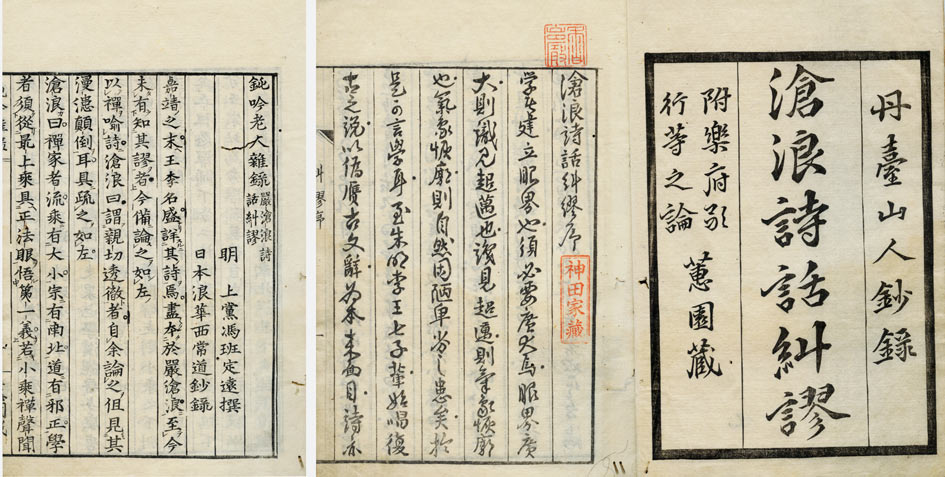 丹臺山人鈔錄
滄浪詩話糾謬
附樂府歌
行等之論
蕙園藏
滄浪詩話糾繆序
神田家藏
学者建立眼界也須必要廣大焉眼界廣
大則識見超邁也識見超邁則氣象恢廓
也氣象恢廓則自然固陋卑之患矣於
是可言學耳至朱明李王七子輩始唱復
古之說以古文辭為本来面目詩亦
鈍吟老人雜錄 嚴滄浪詩話糾謬
明 上黨馮班定遠撰
日本 浪華西常道鈔錄
嘉靖之末王李名盛詳其詩焉盡本於嚴滄浪至今
未有知其謬者今備論之如左
以禪喻詩滄浪曰謂親切透徹者自余論之但見其
漫漶顛倒耳具疏之如左
滄浪曰禪家者流乘有大小宗有南北道有邪正學
者須從最上乘具正法眼悟第一義若小乘禪聲聞